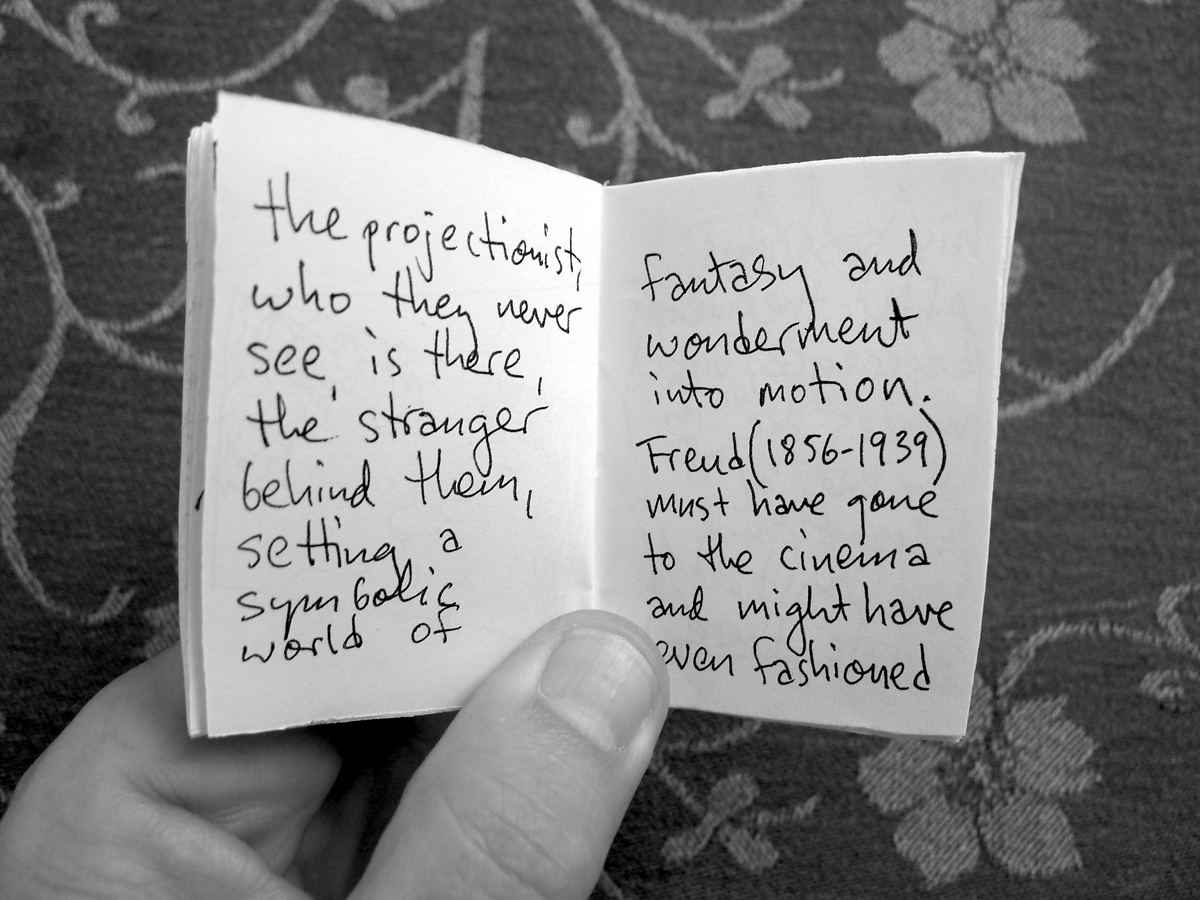 the projectionist,
who they never
see, is there,
the stranger
behind them,
setting a
symbolic
world of
fantasy and
wonderment
into motion.
Freud (1856-1939)
must have gone
to the cinema
and might have
even fashioned